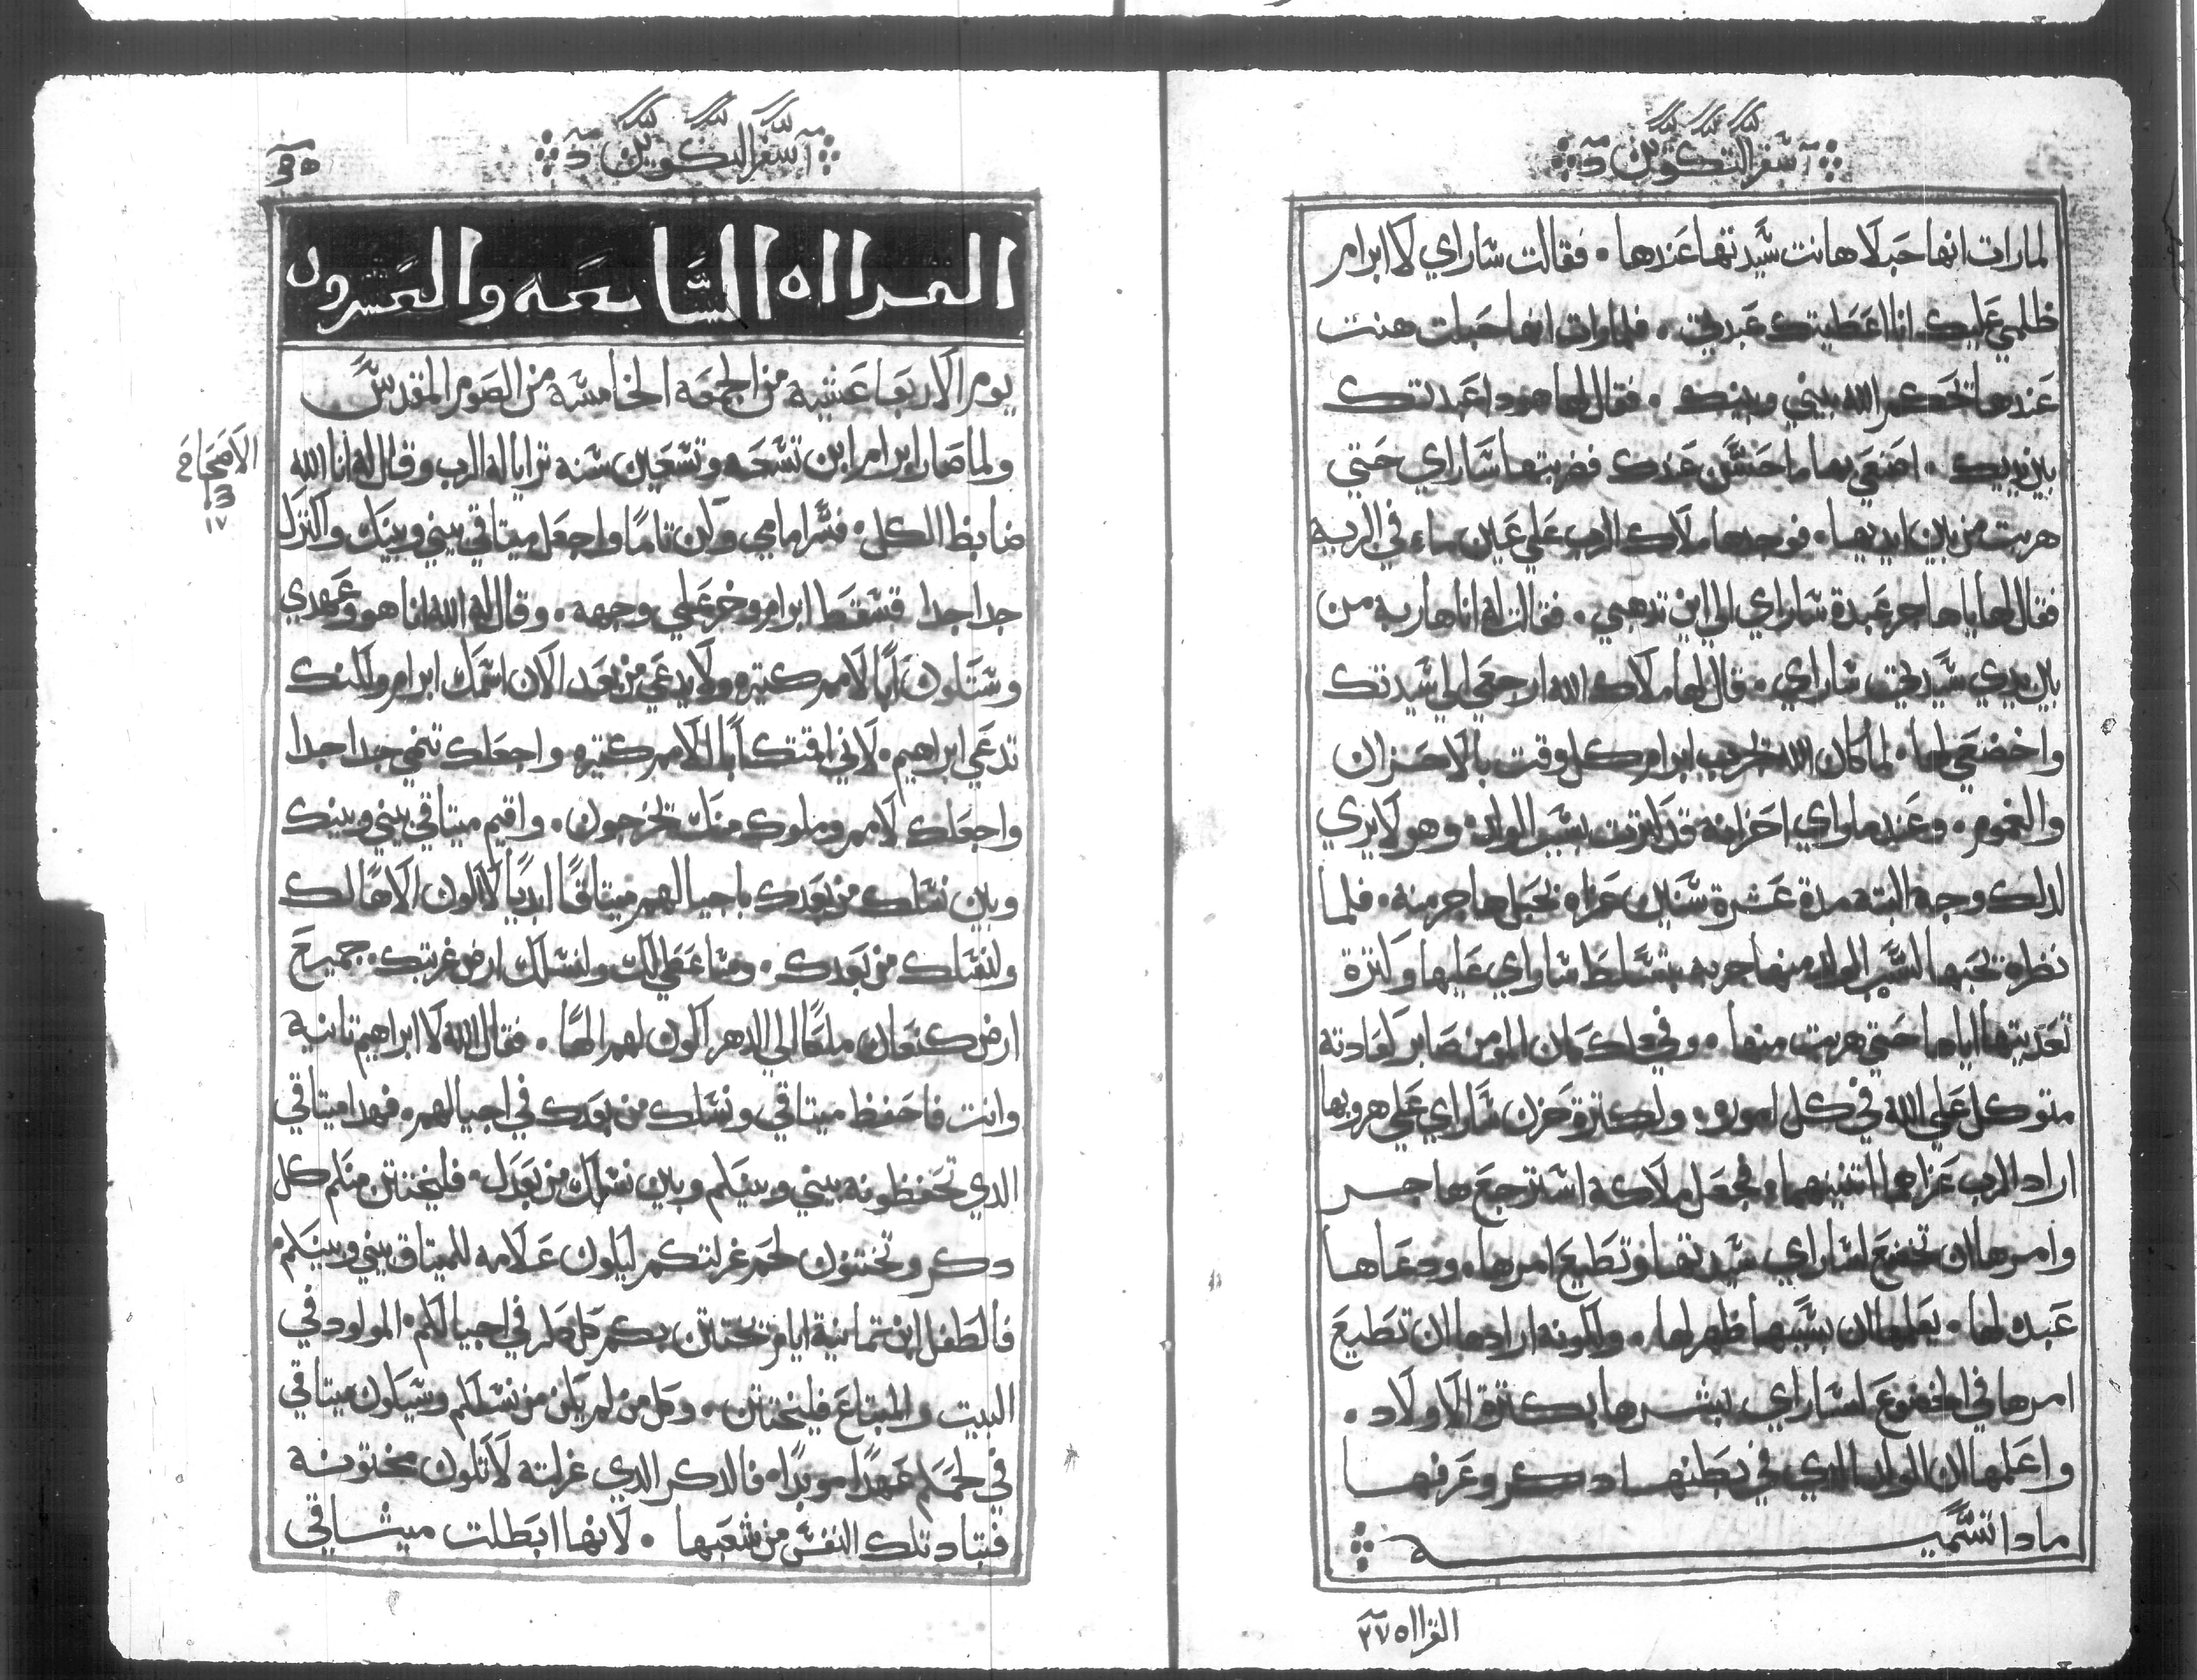 سفر التكوين
لما رات انها حبلا هانت سيدتها عندها . فقالت ساراي لا ابرام
ظلمي عليك انا اعطيتك عبدتي . فلما رات انها حبلت هنت
عندها تحكم الله بيني وبينك . فقال لها هودا عبدتك
بين يديك . اصنعي بها ما حسن عندك فضربتها ساراي حتي
هربت من بين ايديها . فوجدها ملاك الرب علي عين ماء في البريه
فقال لها يا هاجر عبدة ساراي الي اين تدهبي . فقالت له انا هاربه من
بين يدي سيدتي ساراي . قال لها ملاك الله ارجعي الي سيدتك
واخضعي لها . لما كان الله يجرب ابرام كل وقت بالاحزان
والغموم . وعندما راي احزانه قد اتزت بسبب الولد . وهو لا يري
لدلك وجه البته مدة عشرة سنين عزاه بحبل هاجر منه . فلما
نظره تحبها لسبب الولد منها جربه بتسلط ساراي عليها وكترة
تعديتها اياها حتي هربت منها . وفي دلك كان المومن صابر كعادته
متوكل علي الله في كل اموره . ولكترة حزن ساراي علي هروبها
اراد الرب عزاهما اتنينهما . فجعل ملاكه استرجع هاجر
وامرها ان تخضع لساراي سيدتها وتطيع امرها . ودعاها
عبده لها . يعلمها ان بسببها ظهر لها . ولكونه ارادها ان تطيع
امرها في الخضوع لساراي بشرها بكترة الاولاد .
واعلمها ان الولد الدي في بطنها دكر وعرفها
مادا تسميه
القرااه ٢٧
سفر التكوين
القرااه السابعه والعشرون
يوم الاربعا عشيه من الجمعه الخامسه من الصوم المقدس
ولما صار ابرام ابن تسعه وتسعين سنه ترايا له الرب وقال له انا الله
الاصحاح
١٧
ضابط الكل . فسر امامي وكن تامًا واجعل ميتاقي بيني وبينك واكترك
جدا جدا فسقط ابرام وخر علي وجهه . وقال له الله انا هو وعهدي
وستكون ابًا لامم كتيره ولا يدعي من بعد الان اسمك ابرام ولكنك
تدعي ابراهيم . لاني اقتك ابًا لامم كتيره واجعلك تنمي جدا جدا
واجعلك لامم وملوك منك تخرجون . واقيم ميتاقي بيني وبينك
وبين نسلك من بعدك باجيالهم ميتاقًا ابديًا لاكون الاهًا لك
ولنسلك من بعدك . وسا عطي لك ولنسلك ارض غربتك . جميع
ارض كنعان ملكًا الي الدهر اكون لهم الهًا . فقال الله لا ابراهيم تانيه
وانت فاحفظ ميتاقي ونسلك من بعدك في اجيالهم . فهدا ميتاقي
الدي تحفظونه بيني وبينكم وبين نسلك من بعدك . فليختتن منكم كل
دكر وتختنون لحم غرلتكم ليكون علامه للميتاق بيني وبينكم
فالطفل ابن تمانية ايام تختتن بكم كل دكر في اجيالكم . المولود في
البيت والمبتاع فليختتن . وكل من لم يكن من نسلكم وسيكون ميتاقي
في لحمكم عهدًا موبدًا . فالدكر الدي غرلته لا تكون مختونه
فتباد تلك النفس من شعبها . لانها ابطلت ميثاقي